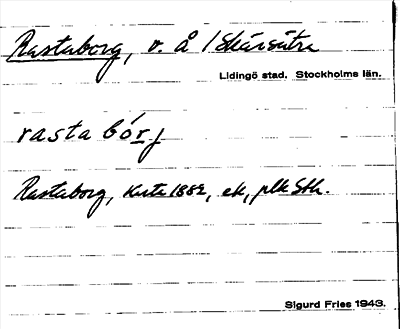 Rastaborg, v. å /Skärsätra
Lidingö stad. Stockholms län.
rasta bórj
Rastaborg, Karta 1882, ek, plk Sth.
Sigurd Fries 1943.